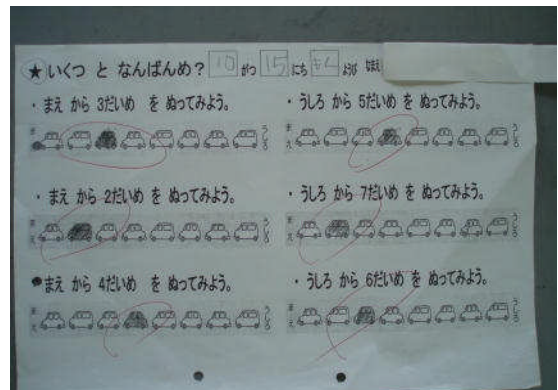 ★いくつ と なんばんめ? 10 がつ 15 にち もく ようび なまえ
・まえ から 3だいめ を ぬってみよう。
まえ うしろ
・まえ から 2だいめ を ぬってみよう。
まえ うしろ
・まえ から 4だいめ を ぬってみよう。
まえ うしろ
・うしろ から 5だいめ を ぬってみよう。
まえ うしろ
・うしろ から 7だいめ を ぬってみよう。
まえ うしろ
・うしろ から 6だいめ を ぬってみよう。
まえ うしろ